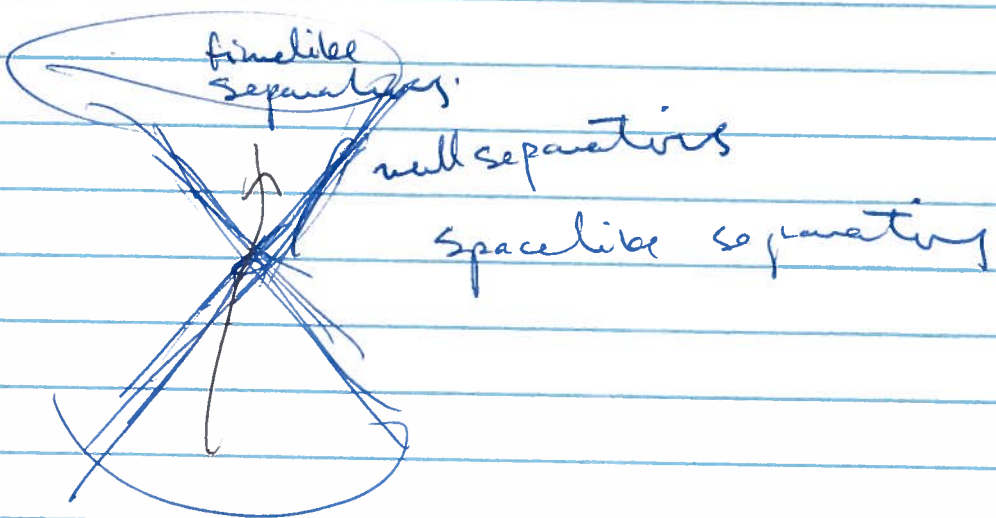 timelike
separations.
null separations
spacelike separations